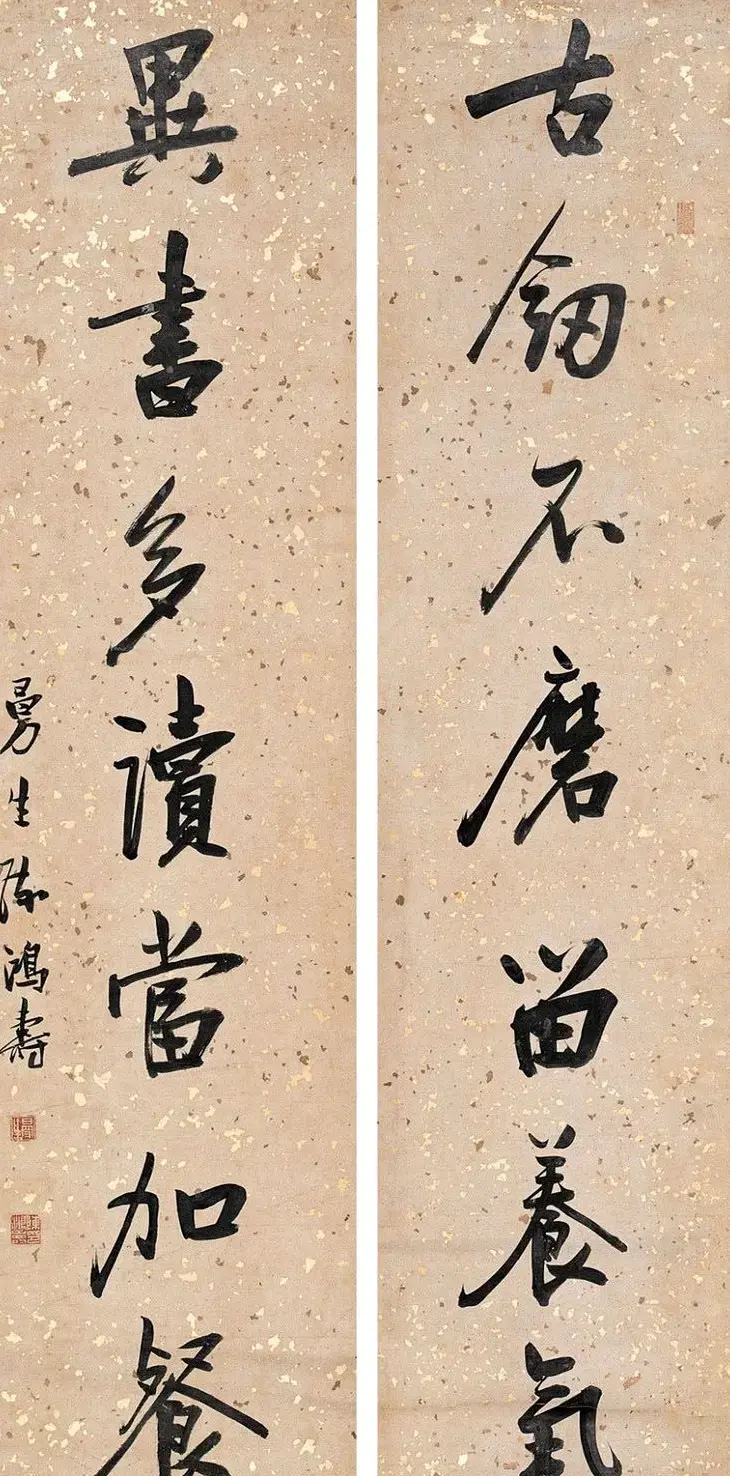 古劒不磨畱養氣
異書多讀當加餐
曼生陳鴻壽